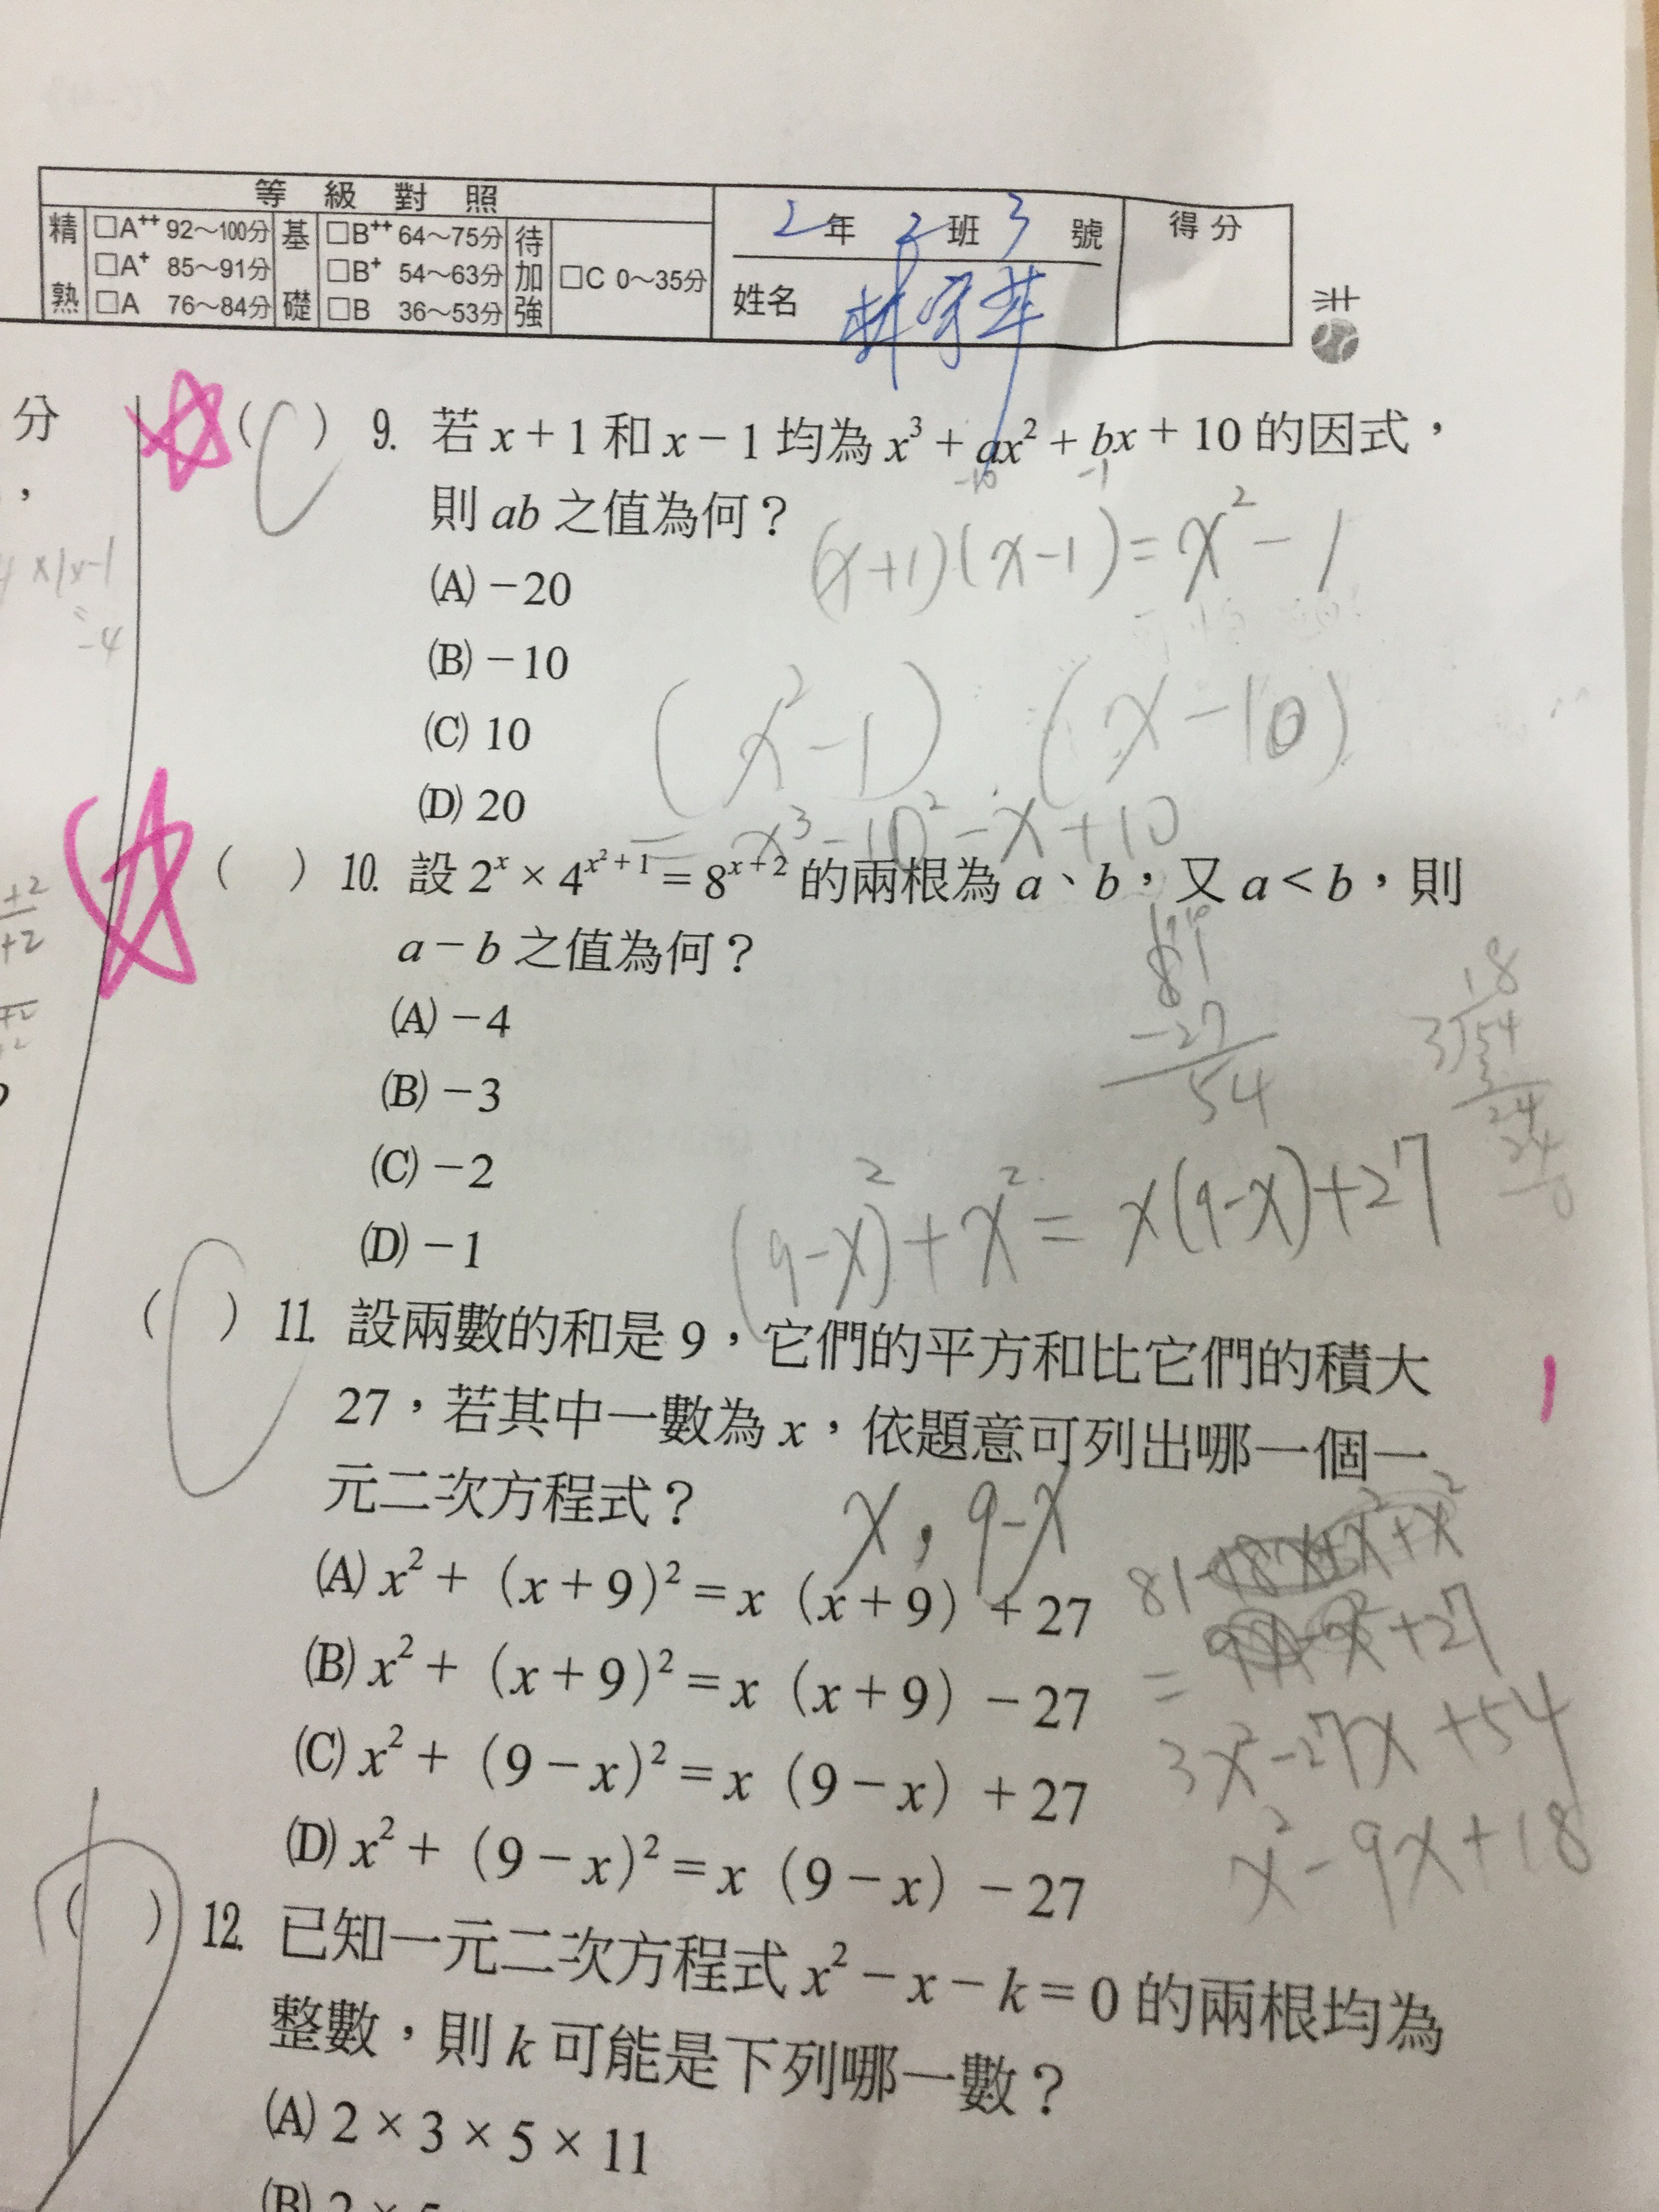 等級對照
精熟 □A++ 92～100分 基礎 □B++ 64～75分 待加強 □C 0～35分
□A+ 85～91分 □B+ 54～63分
□A 76～84分 □B 36～53分
2年 2班 3號
姓名
得分
分
，
x|x-1
=
-4
+2
+2
( C ) 9. 若 x + 1 和 x − 1 均為 x³ + ax² + bx + 10 的因式，
-10 -1
則 ab 之值為何？
(x+1)(x-1) = x² - 1
(A) −20
(B) −10
(x² - 1) · (x - 10)
(C) 10
(D) 20
= x³ - 10² - x + 10
( ) 10. 設 2ˣ × 4ˣ²⁺¹ = 8ˣ⁺² 的兩根為 a、b，又 a < b，則
a − b 之值為何？
81
-27
54
18
3)54
3
24
24
0
(A) −4
(B) −3
(C) −2
(D) −1
(9-x)² + x² = x(9-x)+27
( C ) 11. 設兩數的和是 9，它們的平方和比它們的積大
27，若其中一數為 x，依題意可列出哪一個一
元二次方程式？
x , 9-x
(A) x² + (x + 9)² = x (x + 9) + 27
(B) x² + (x + 9)² = x (x + 9) − 27
(C) x² + (9 − x)² = x (9 − x) + 27
(D) x² + (9 − x)² = x (9 − x) − 27
81-18x+x²+x²
= 9x-x²+27
3x²-27x+54
x²-9x+18
( D ) 12. 已知一元二次方程式 x² − x − k = 0 的兩根均為
整數，則 k 可能是下列哪一數？
(A) 2 × 3 × 5 × 11